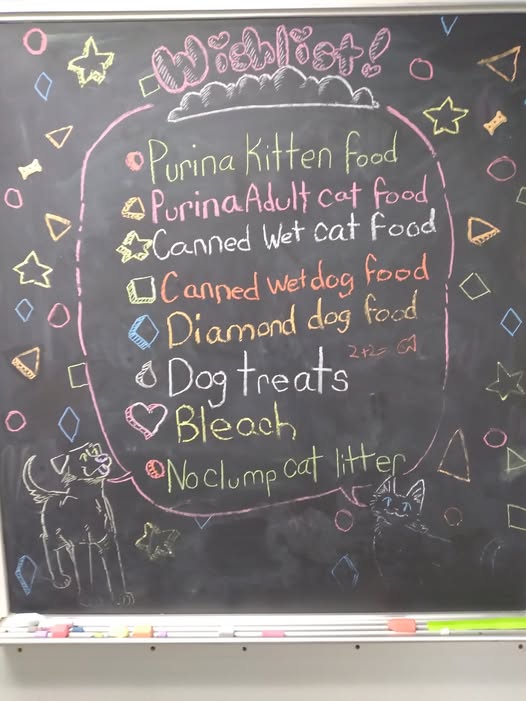 Wishlist!
Purina Kitten food
Purina Adult cat food
Canned Wet cat food
Canned wet dog food
Diamond dog food
2+2=
Dog treats
Bleach
No clump cat litter